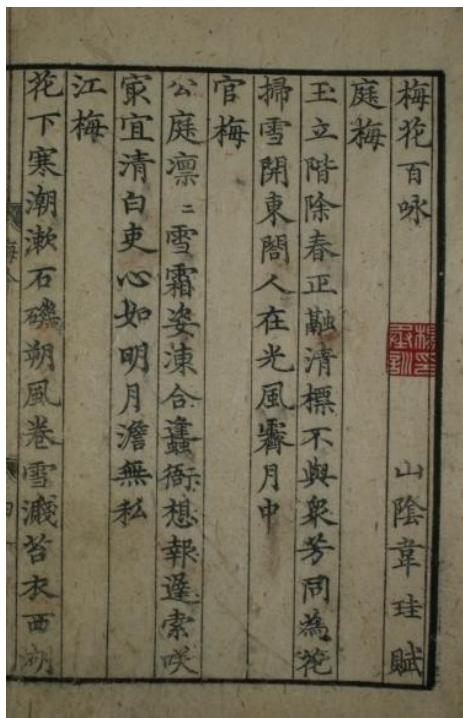 梅花百咏 山陰韋珪賦
庭梅
玉立階除春正融清標不與衆芳同為花
掃雪開東閤人在光風霽月中
官梅
公庭凛〻雪霜姿凍合蠭衙想報遲索咲
㝡宜清白吏心如明月澹無私
江梅
花下寒潮漱石磯朔風卷雪濺苔衣西湖